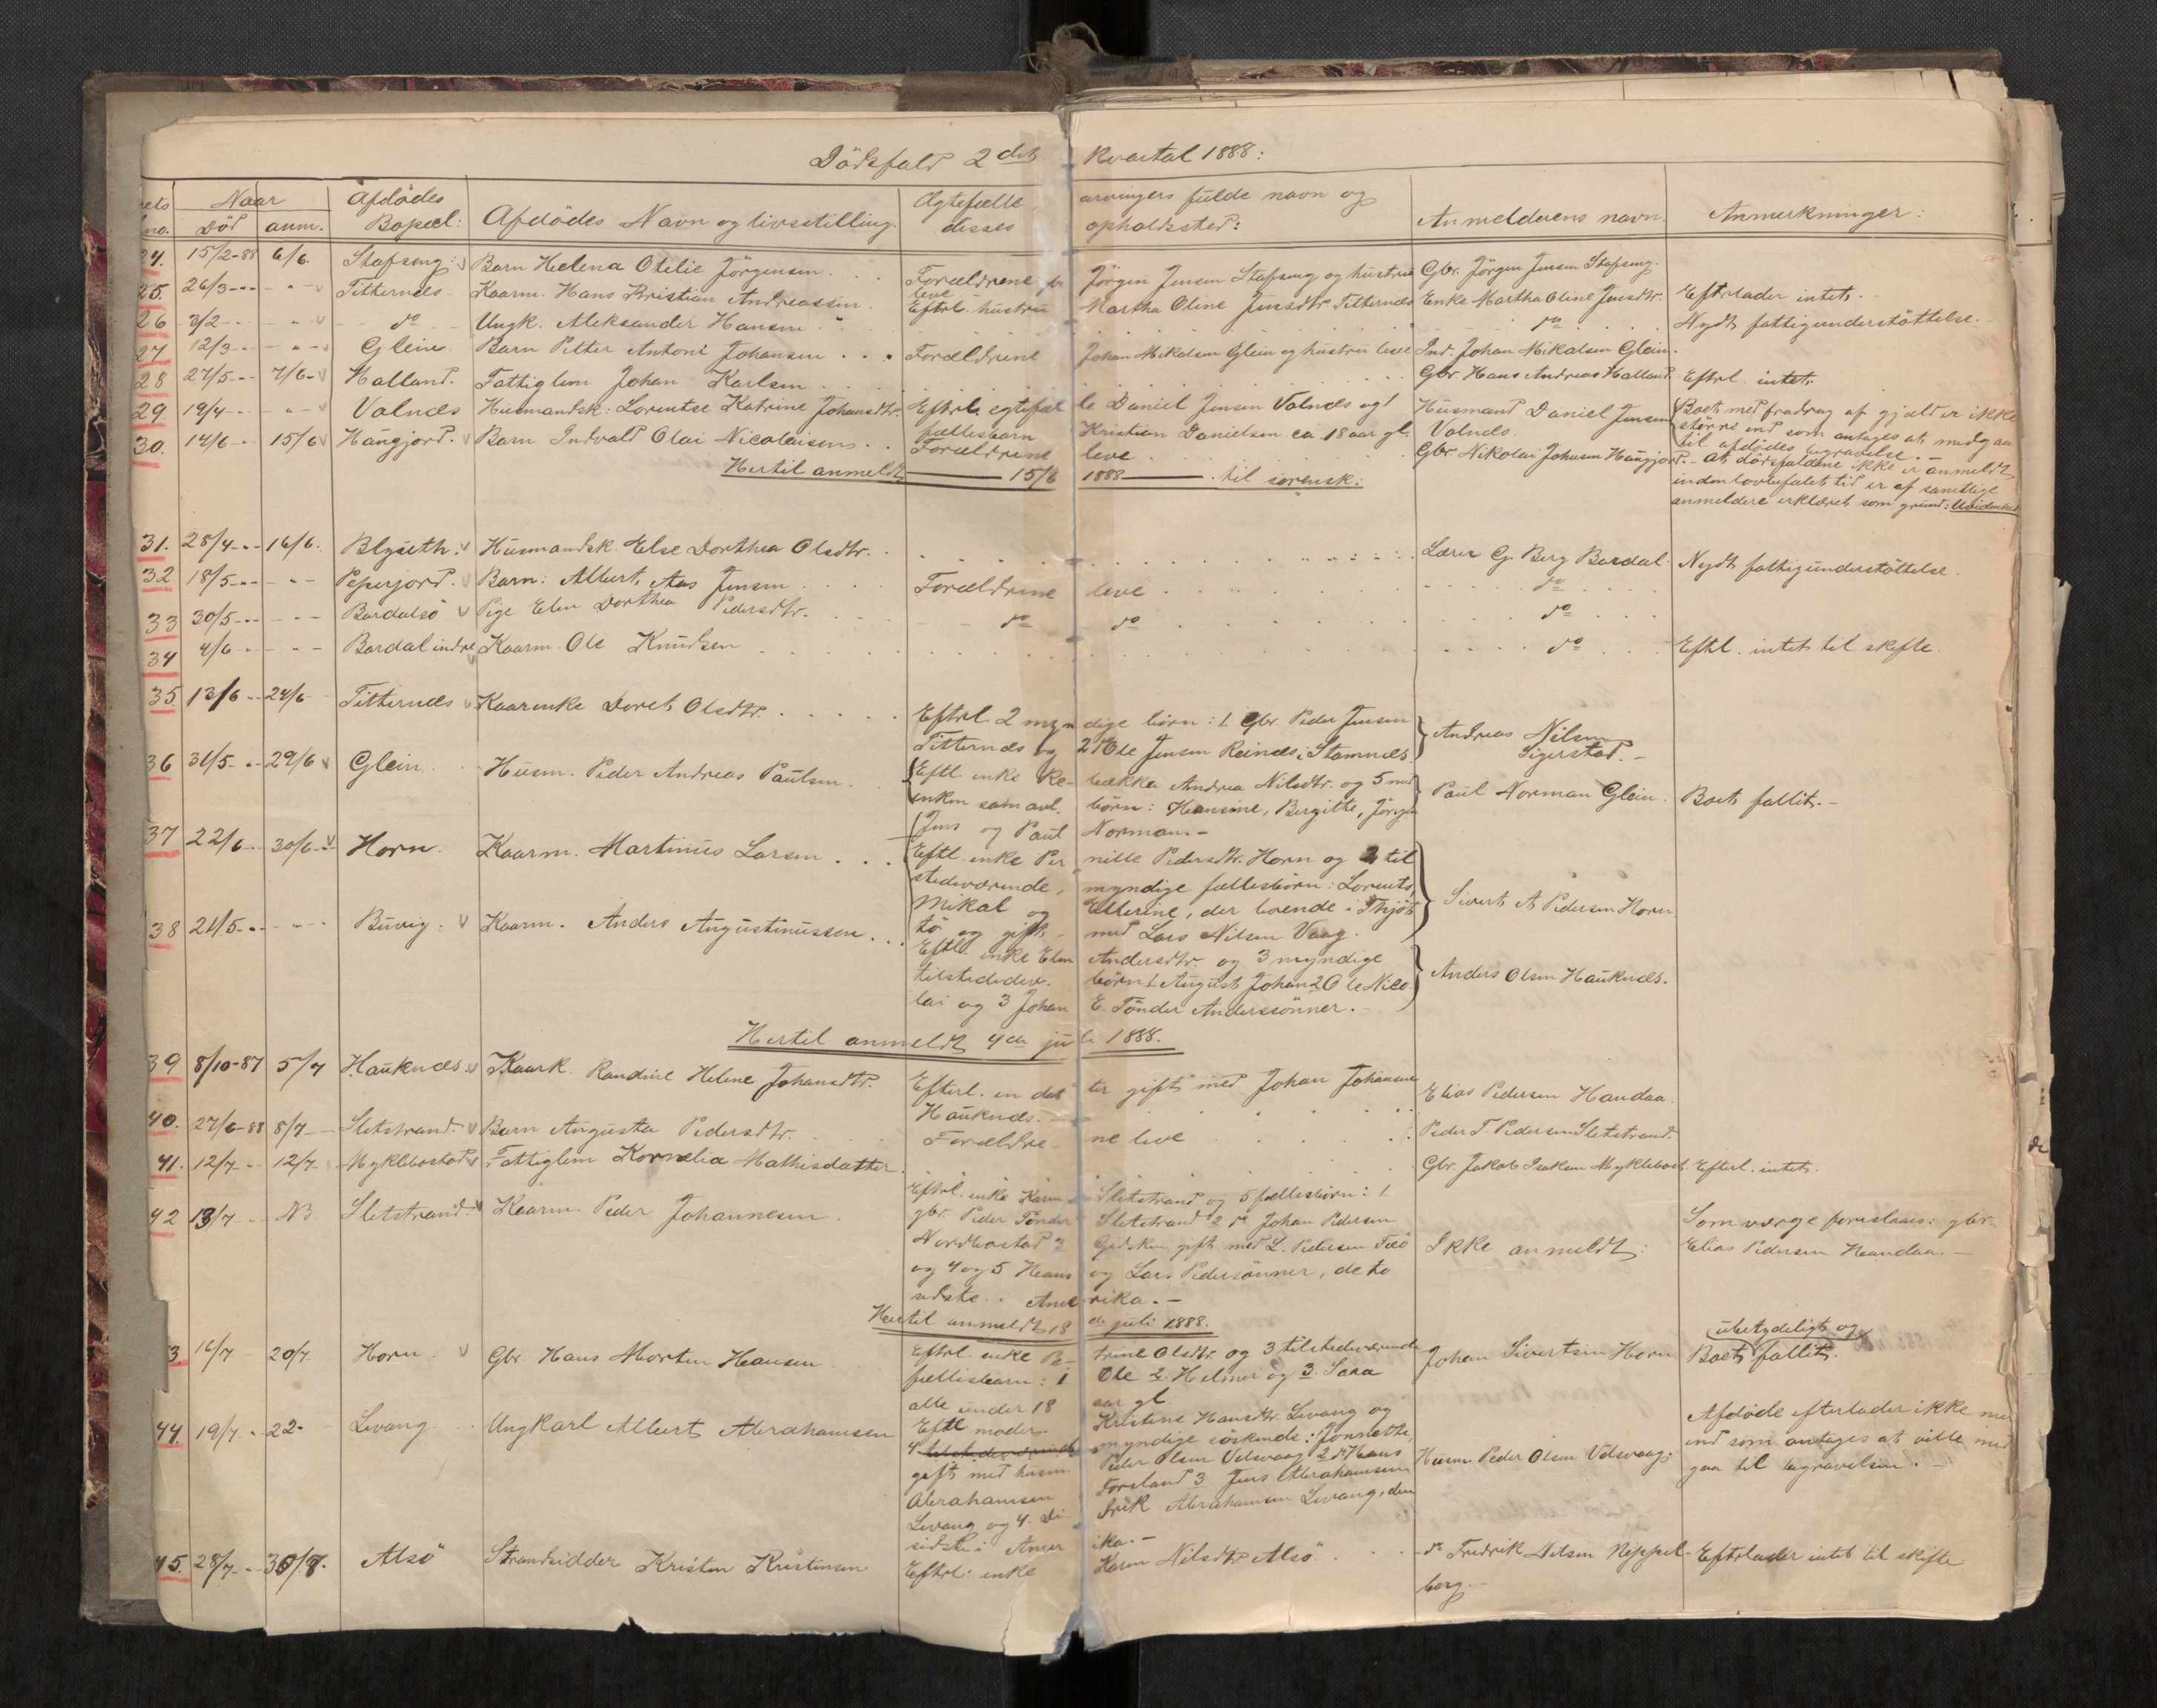 Dödsfald 2det kvartal 1888:
Naar Afdödes Ægtefælle, arvingers fulde navn og
no. Död anm. Bopæl: Afdödes Navn og livsstilling. disses opholdssted: Anmelderens navn. Anmerkninger:
24. 15/2-88 6/6. Stafseng: Barn Helena Otilie Jörgensen. Forældrene Jörgen Jensen Stafseng og hustru Gbr. Jörgen Jensen Stafseng.
leve
25. 26/3 -"- Titternes Kaarm. Hans Kristian Andreassen. Efterl. hustru Martha Oline Jensdtr. Titternes Enke Martha Oline Jensdtr. Efterlader intet.
26 3/2 -"- do Ungk. Aleksander Hansen do Nydt fattigunderstöttelse.
27 12/3 -"- Glein Barn Petter Antoni Johansen Forældrene Johan Mikalsen Glein og hustru leve Ind. Johan Mikalsen Glein.
28 27/5 7/6 Halland. Fattiglem Johan Karlsen Gbr. Hans Andreas Halland. Eftrl. intet.
29. 19/4 -"- Valnes Husmandsk: Lorentse Katrine Johansdtr. Eftrl. egtefælle Daniel Jensen Valnes og 1 Husmand Daniel Jensen Boets med fradrag af gjæld er ikke
fællesbarn Kristian Danielsen ca 18 aar gl. Valnes. större end som antages at medgaa
til afdödes begravelse.
30. 14/6 15/6 Haugjord. Barn Indvald Olai Nicolaisen Forældrene leve Gbr. Nikolai Johnsen Haugjord. - At dödsfaldene ikke er anmeldt
Hertil anmeldt 15/6 1888 til sorensk: inden lovbefalet tid er af samtlige
anmeldere erklæret som grund: Uvidenhed
31. 28/4 16/6. Blyseth. Husmandsk. Else Dorthea Olsdtr. Lærer G. Berg Bardal. Nydt fattigunderstöttelse.
32 18/5 -"- Peperjord. Barn: Albert Aas Jensen Forældrene leve do
33 30/5 -"- Bardalsö Pige Elen Dorthea Pedersdtr. do do do
34 4/6 -"- Bardal indre Kaarm. Ole Knudsen do Eftl. intet til skifte.
35. 13/6 24/6 Titternes Kaarenke Doret Olsdtr. Eftrl. 2 myndige börn: 1 Gbr. Peder Jensen Andreas Nilsen
Titternes og 2 do Ole Jensen Reines i Stamnes. Sigerstad.-
36 31/5 29/6 Glein. Husm. Peder Andreas Paulsen. Eftl. enke Rebækka Andrea Nilsdtr. og 5 med Paul Norman Glein. Boet fallit.-
enken sam avl. börn: Hansine, Bergitte, Jörgen
Jens og Paul Norman.-
37 22/6 30/6 Horn. Kaarm. Martinus Larsen Eftl. enke Pernille Pedersdtr. Horn og 2 til
stedeværende, myndige fællesbörn: Lorents Sivert A Pedersen Horn
Mikal og Ellerine, der boende i Thjöt
tö og gift med Lars Nilsen Vaag.
38 21/5 -"- Buvig: Kaarm. Anders Augustinussen Eftl. enke Elen Andersdtr. og 3 myndige Anders Olsen Hauknes.
tilstedev. börn 1 August Johan 2 Ole Nico
lai og 3 Johan E. Tönder Anderssönner.-
Hertil anmeldt 4de juli 1888.
39 8/10-87 5/7 Hauknes. Kaark. Randine Helene Johansdtr. Efterl. en datter gift med Johan Johansen Elias Pedersen Handaa.
Hauknes.-
40. 27/6-88 8/7 Sletstrand. Barn Augusta Pedersdtr. Forældrene leve Peder T. Pedersen Sletstrand.
41. 12/7 12/7 Myklebostad Fattiglem Kornelia Mathisdatter. Gbr. Jakob Isaksen Myklebost. Efterl. intet.
42 13/7 NB Sletstrand. Kaarm. Peder Johannesen. Eftrl. enke Karen Sletstrand og 5 fællesbörn: 1
gbr. Peder Tönder Sletstrand 2 do Johan Pedersen Som værge foreslaaes: gbr.
Nordbostad 3 Gidsken gift med L. Pedersen Ikke anmeldt: Elias Pedersen Handaa.-
og 4 og 5 Hans og Lars Pedersönner, de to
sidste i Amerika.-
Hertil anmeldt 18de juli 1888.
43 16/7 20/7 Horn Gbr. Hans Morten Hansen Eftrl. enke Petrine Olsdtr. og 3 tilstedeværende Johan Sivertsen Horn ubetydeligt og
Boet fallit.
fællesbarn: 1 Ole 2. Helmer og 3. Sara
alle under 18 aar gl.
44. 19/7 22- Levang Ungkarl Albert Abrahamsen Eftl moder Kristine Hansdtr. Levang og Afdöde efterlader ikke mer
4 tilstedeværende myndige söskende: 1 Jonnette, end som antages at ville med
gift med husm. Peder Olsen Velsvaag 2 do Hans Husm. Peder Olsen Velsvaag. gaa til begravelsen.-
Abrahamsen Forsland 3 Jens Abrahamsen
Levang og 4. Didrik Abrahamsen Levang, den
sidste i Amerika.-
45. 28/7 30/7. Alsö Strandsidder Kristen Kristensen Eftrl. enke Karen Nilsdtr Alsö. do Fredrik Nilsen Rippel- Efterlader intet til skifte
berg.-